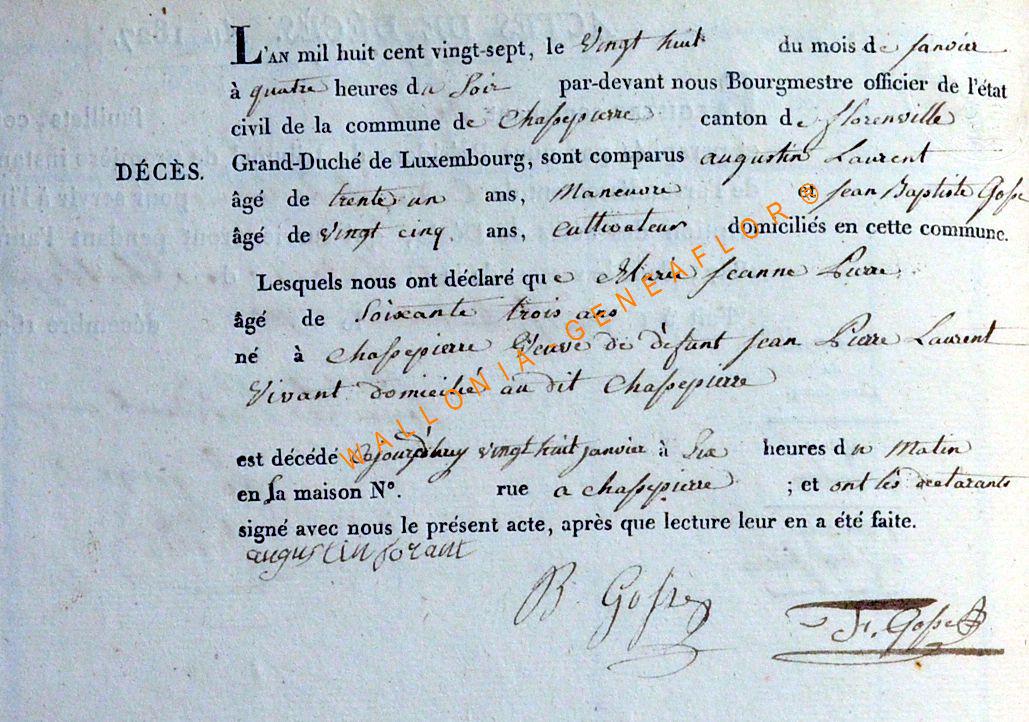 L'AN mil huit cent vingt-sept, le Vingt huit du mois de janvier
à quatre heures du Soir par-devant nous Bourgmestre officier de l'état
civil de la commune de Chassepierre canton de florenville
DÉCÈS.
Grand-Duché de Luxembourg, sont comparus augustin Laurent
âgé de trente un ans, Maneuvre et Jean Baptiste Gosse
âgé de vingt cinq ans, Cultivateur domiciliés en cette commune.
Lesquels nous ont déclaré que Marie Jeanne Pierre
âgé de Soixante trois ans
né à Chassepierre Veuve de défunt Jean Pierre Laurent
Vivant domicilié au dit Chassepierre
est décédé vingt huit janvier à Six heures du Matin
en sa maison N°. rue à Chassepierre ; et ont les declarants
signé avec nous le présent acte, après que lecture leur en a été faite.
augustin lorant
B Gosse
Gosse
WALLONIA - GENEAFLOR ©